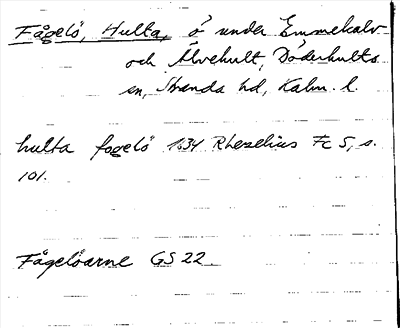 Fågelö, Hulta, ö under Emmekalv
och Älvehult, Döderhults
sn, Stranda hd, Kalm. l.
hulta fogelö 1634 Rhezelius Fc 5, s.
101.
Fågelöarne GS 22.